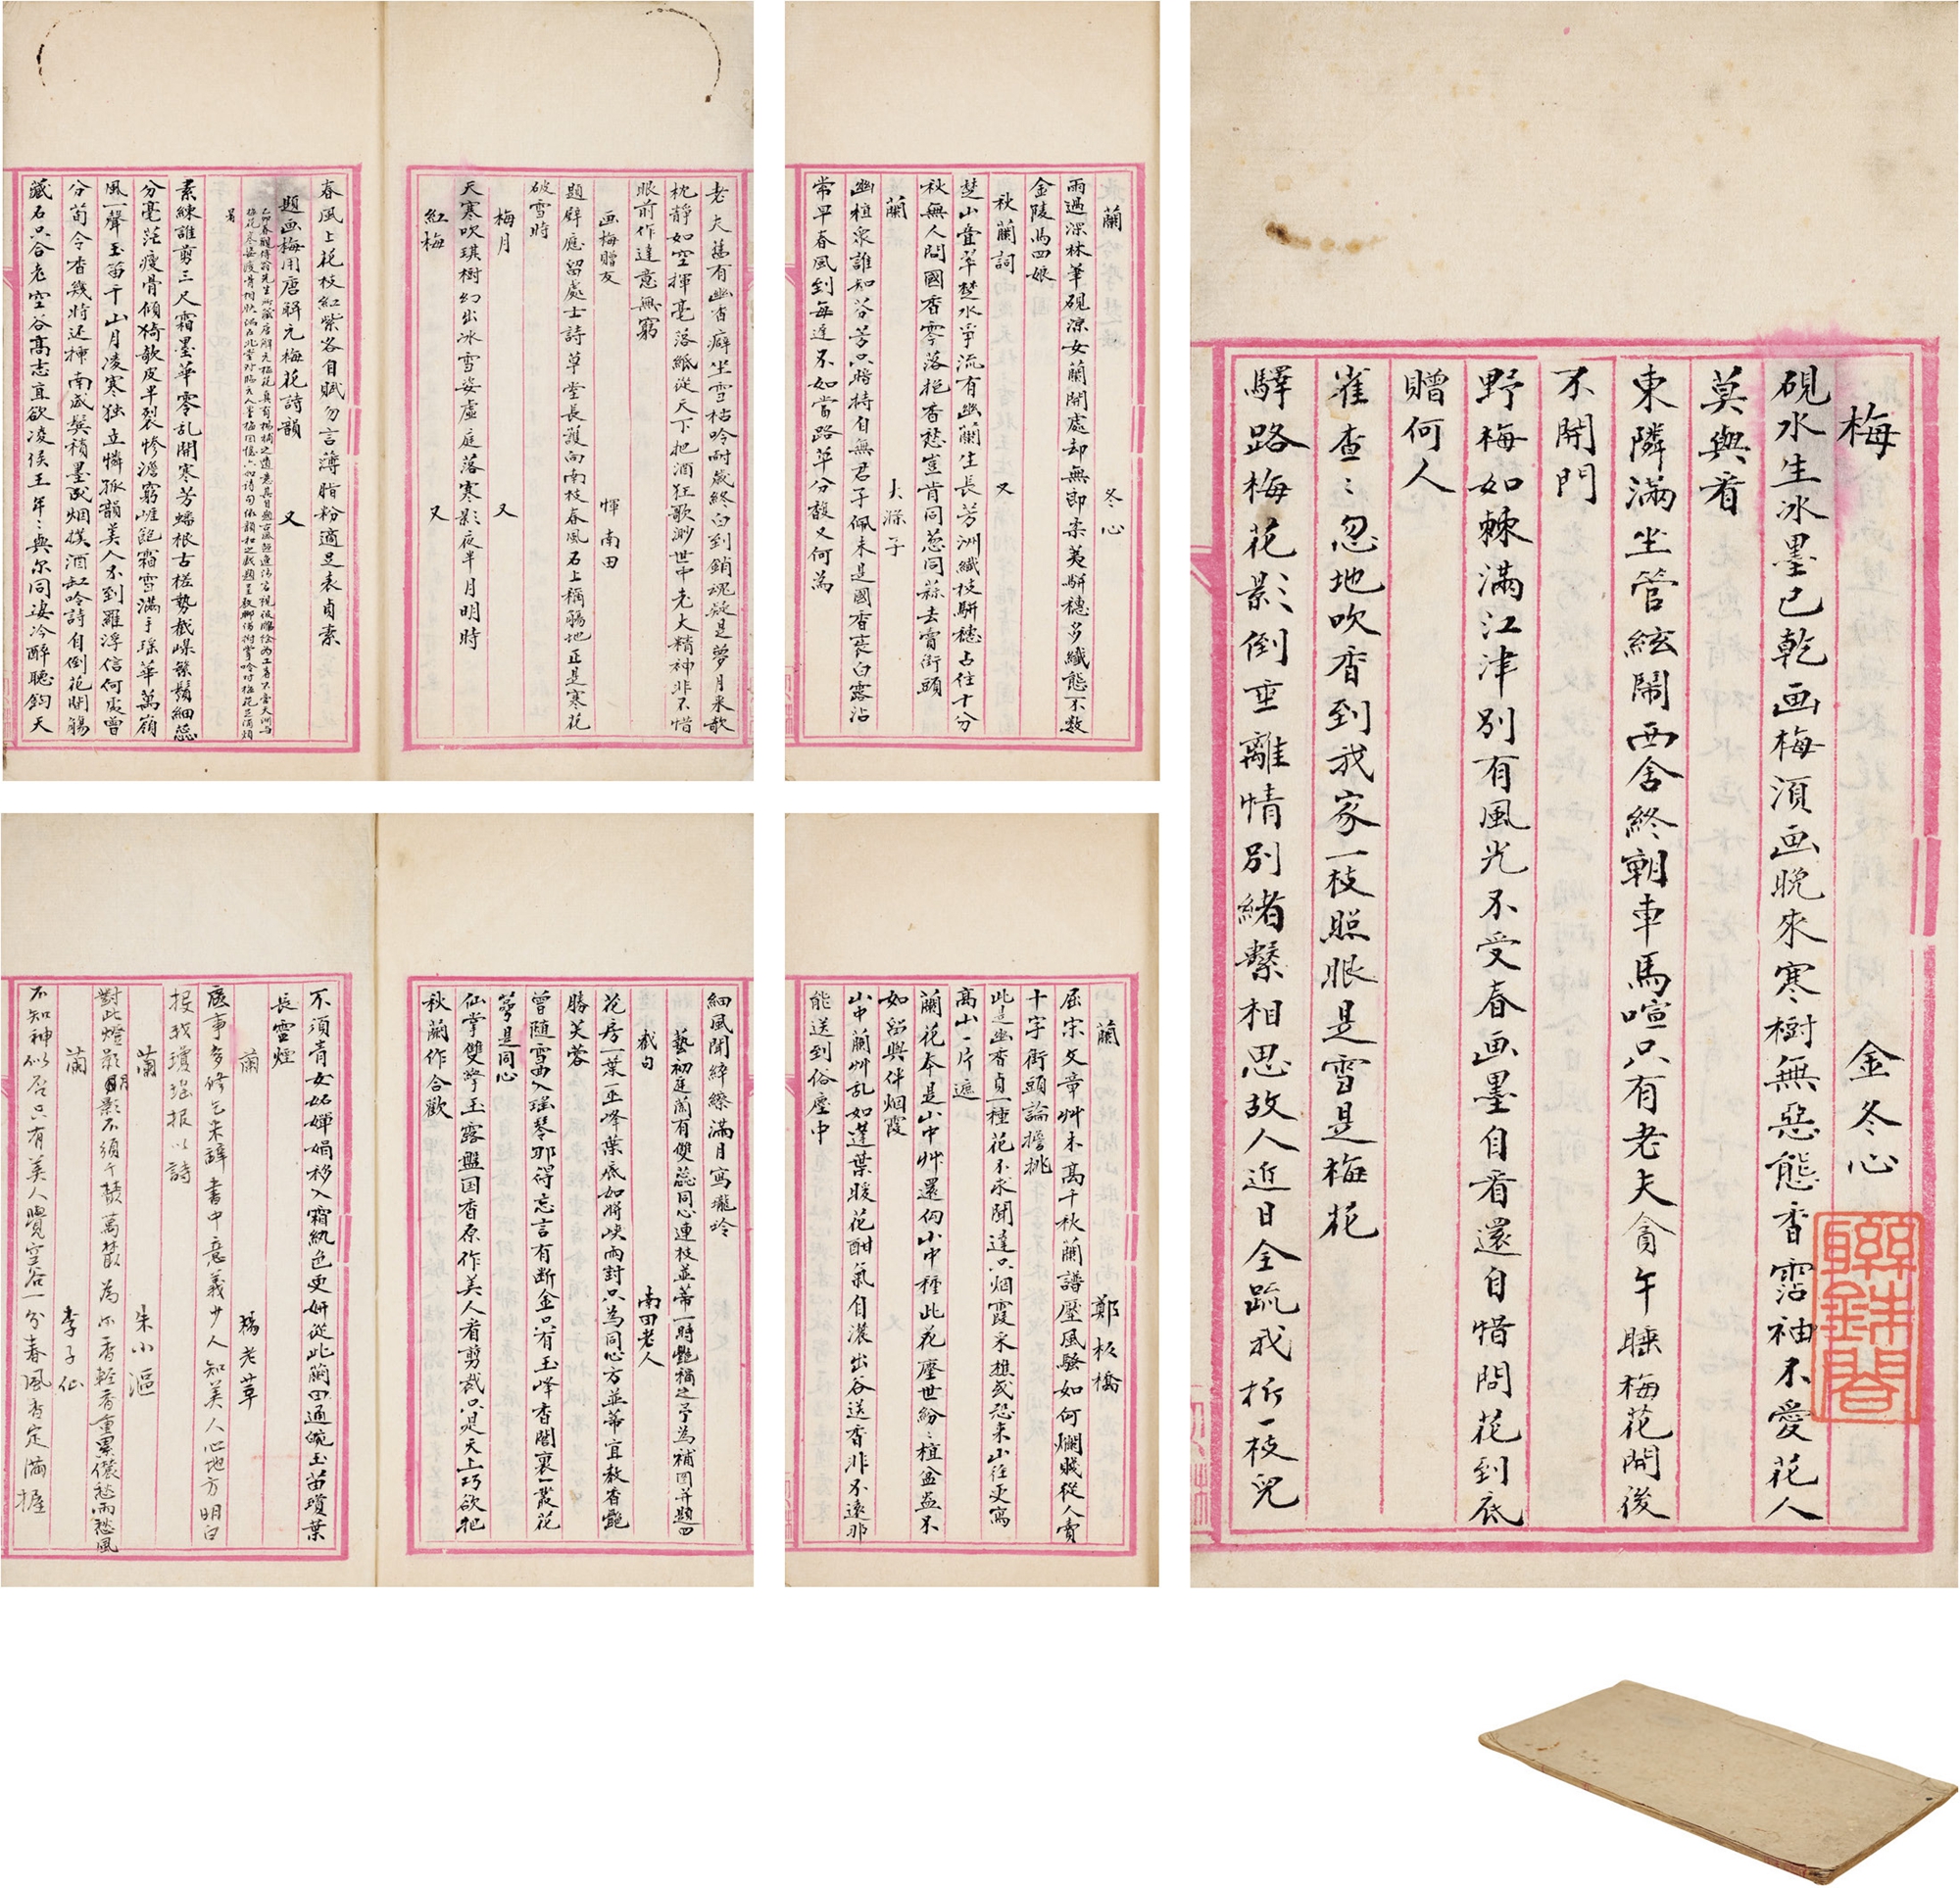 梅 金冬心
硯水生冰墨已乾画梅須画晚來寒樹無惡態香霑袖不愛花人
莫與看
東隣滿坐管絃鬧西舍終朝車馬喧只有老夫貪午睡梅花開後
不開門
野梅如棘滿江津別有風光不受春画墨自看還自惜問花到底
贈何人
雀查〻忽地吹香到我家一枝照眼是雪是梅花
驛路梅花影倒垂離情別緒繫相思故人近日全疏我折一枝兒
蘭 冬心
雨過深林筆硯涼女蘭開處却無郎柔荑駢穗多纖態不数
金陵馬四娘
秋蘭詞 又
楚山疊翠楚水爭流有幽蘭生長芳洲纖枝駢穗占住十分
秋無人問國香零落抱香愁豈肯同葱同蒜去賣街頭
蘭 大滌子
幽植衆誰知芬芳只暗持自無君子佩未是國香衰白露沾
常早春風到每遲不如當路草分馥又何為
老夫舊有幽香癖坐雪枯吟耐歲終白到銷魂疑是夢月來欹
枕靜如空揮毫落紙從天下把酒狂歌渺世中老大精神非不惜
眼前作達意無窮
画梅贈友 惲南田
題壁應留處士詩草堂長護向南枝春風石上稱觴地正是寒花
破雪時
梅月 又
天寒吹琪樹幻出冰雪姿虛庭落寒影夜半月明時
紅梅 又
春風上花枝紅紫各自賦勿言薄脂粉適足表貞素
題画梅用唐解元梅花詩韻 又
素練誰剪三尺霜墨華零乱開寒芳蟠根古槎勢樾嶫繁鬚細蕊
分毫茫瘦骨傾猗皴皮半裂慘澹窮崕飽霜雪滿手瑤華萬嶺
風一聲玉笛千山月凌寒独立憐孤韻美人不到羅浮信何處曾
分荀令香幾將还揷南威鬂積墨成烟撲酒缸吟詩自倒花開觴
藏石只合老空谷高志直欲凌侯王年〻與尔同凄冷醉聽鈞天
蘭 鄭板橋
屈宋文章艸木高千秋蘭譜壓風騷如何爛賤從人賣
十字街頭論擔挑
此是幽香貞一種花不求聞達只烟霞采樵或恐来山徑更寫
高山一片遮
蘭花本是山中艸還向山中種此花塵世紛〻植盆盎不
如留與伴烟霞
山中蘭艸乱如蓬葉暖花酣氣自濃出谷送香非不遠那
能送到俗塵中
細風聞綷縩滿月寫瓏玲
藝初庭蘭有雙蕊同心連枝並蒂一時艷稱之予為補图并題四
截句 南田老人
花房一葉一巫峰葉底如將峽雨封只為同心方並蒂宜教香艷
勝芙蓉
曾隨雪曲入瑤琴那得忘言有断金只有玉峰香閣裏一叢花
萼是同心
仙掌雙擎玉露盤国香原作美人看剪裁只是天上巧欲把
秋蘭作合歡
不須青女妬嬋娟移入霜紈色更妍從此蘭田通畹玉苗瓊葉
長雲煙
蘭 矯老草
底事多修乞未辭書中意義少人知美人心地方明白
投我瓊瑤报以詩
蘭 朱小漚
對此燈影明月影不須千蕟萬蕟為尔香輕香重累儂愁雨愁風
蘭 李子仙
不知神似否只有美人覺空谷一分春風香定滿握
聯銖閣